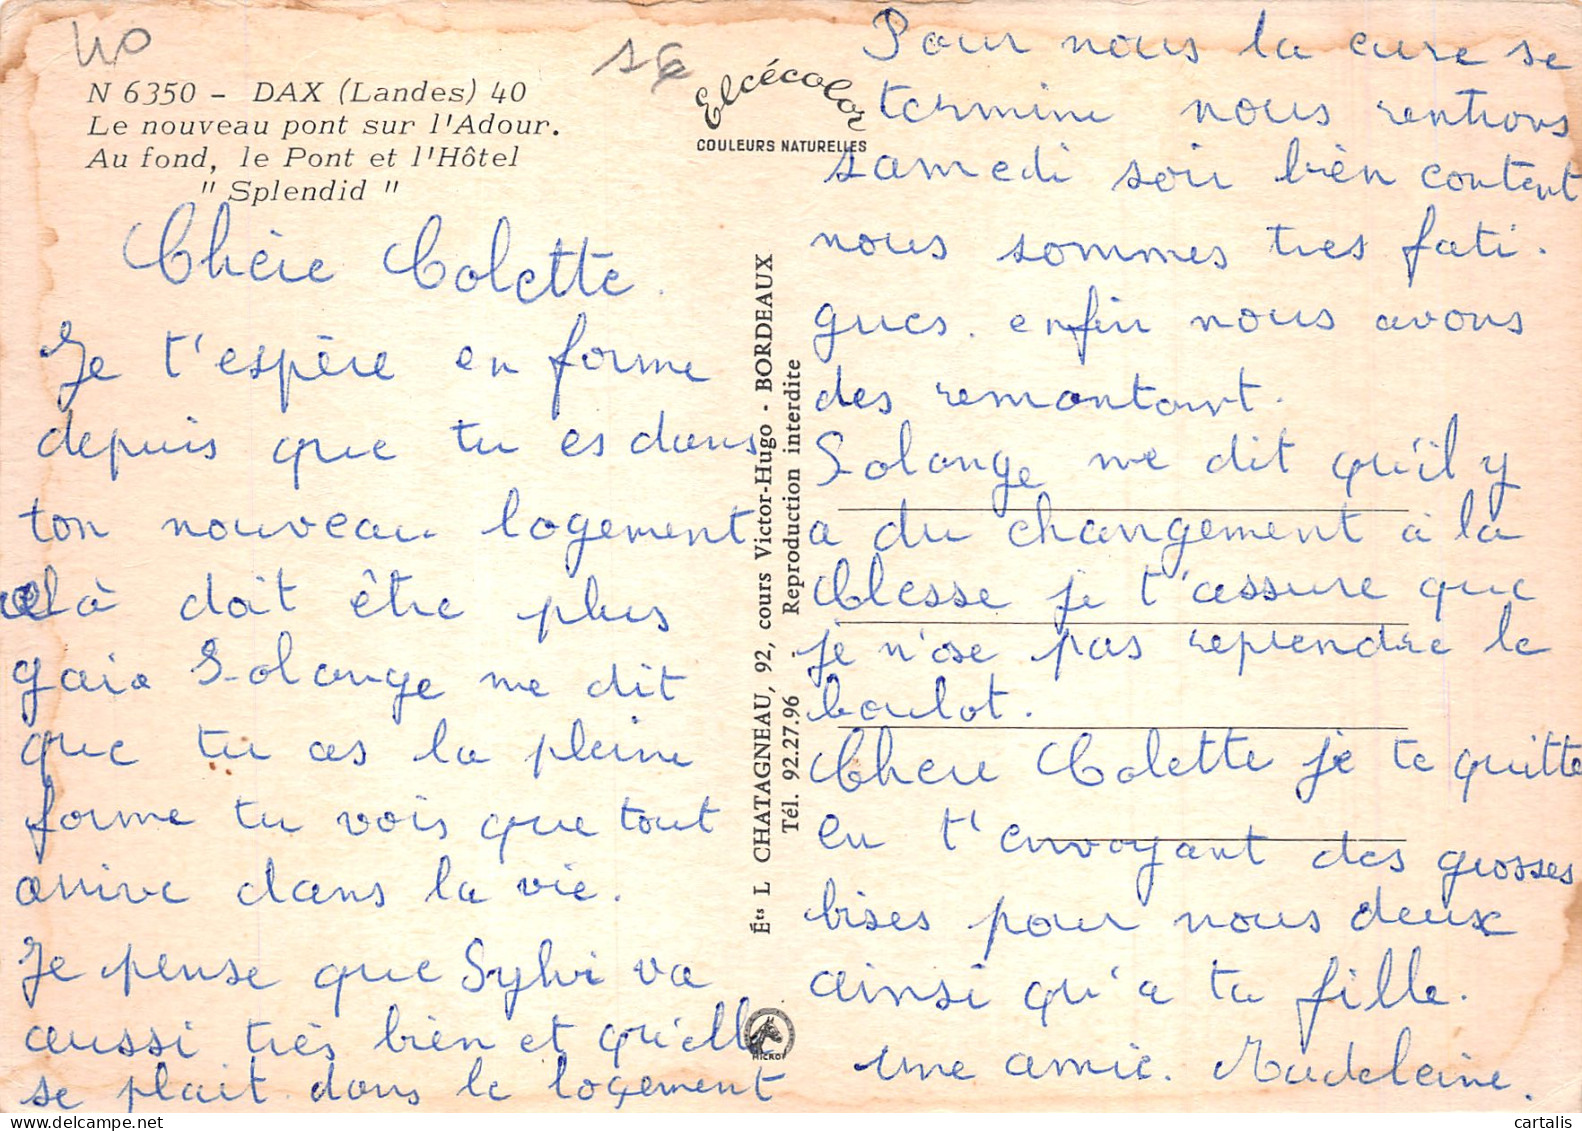 40
N 6350 - DAX (Landes) 40
Le nouveau pont sur l'Adour.
Au fond, le Pont et l'Hôtel
" Splendid "
Elcécolor
COULEURS NATURELLES
Chère Colette.
Je t'espère en forme
depuis que tu es dans
ton nouveau logement
là doit être plus
gaie Solange me dit
que tu as la pleine
forme tu vois que tout
arrive dans la vie.
Je pense que Sylvi va
aussi très bien et qu'elle
se plait dans le logement
Éts L CHATAGNEAU, 92, cours Victor-Hugo - BORDEAUX
Tél. 92.27.96 - Reproduction interdite
MICRO
Pour nous la cure se
termine nous rentrons
samedi soir bien content
nous sommes tres fati-
gues. enfin nous avons
des remontant.
Solange me dit qu'il y
a du changement à la
Clesse je t'assure que
je n'ose pas reprendre le
boulot.
Chere Colette je te quitte
en t'envoyant des grosses
bises pour nous deux
ainsi qu'a ta fille.
une amie. Madeleine.
cartalis.com